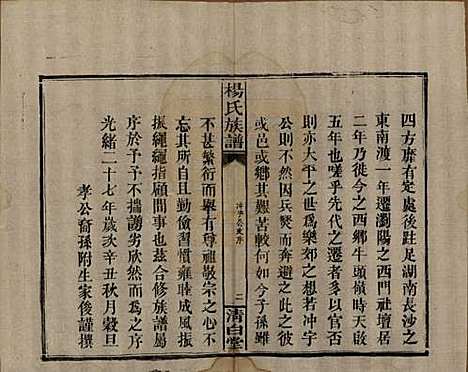 四方靡有定處後跬足湖南長沙之
東南渡一年遷瀏陽之西門社壇居
二年乃徙今之西鄉牛頭嶺時天啟
五年也嗟乎先代之遷者以官否
則亦大平之世為樂郊之想若冲宇
公則不然因兵燹而奔避之此或
或邑或鄉其艱苦較何如分子孫雖
楊氏族譜
二
清白堂
不甚繁衍而有尊祖敬宗之心不
忘其所自且勤儉習慣雍睦成風振
振繩繩指顧間事也茲合修族譜屬
序於予予不揣謭劣忻而為之序
光緒二十七年歲次辛丑秋月穀旦
孝公裔孫附生家後謹撰